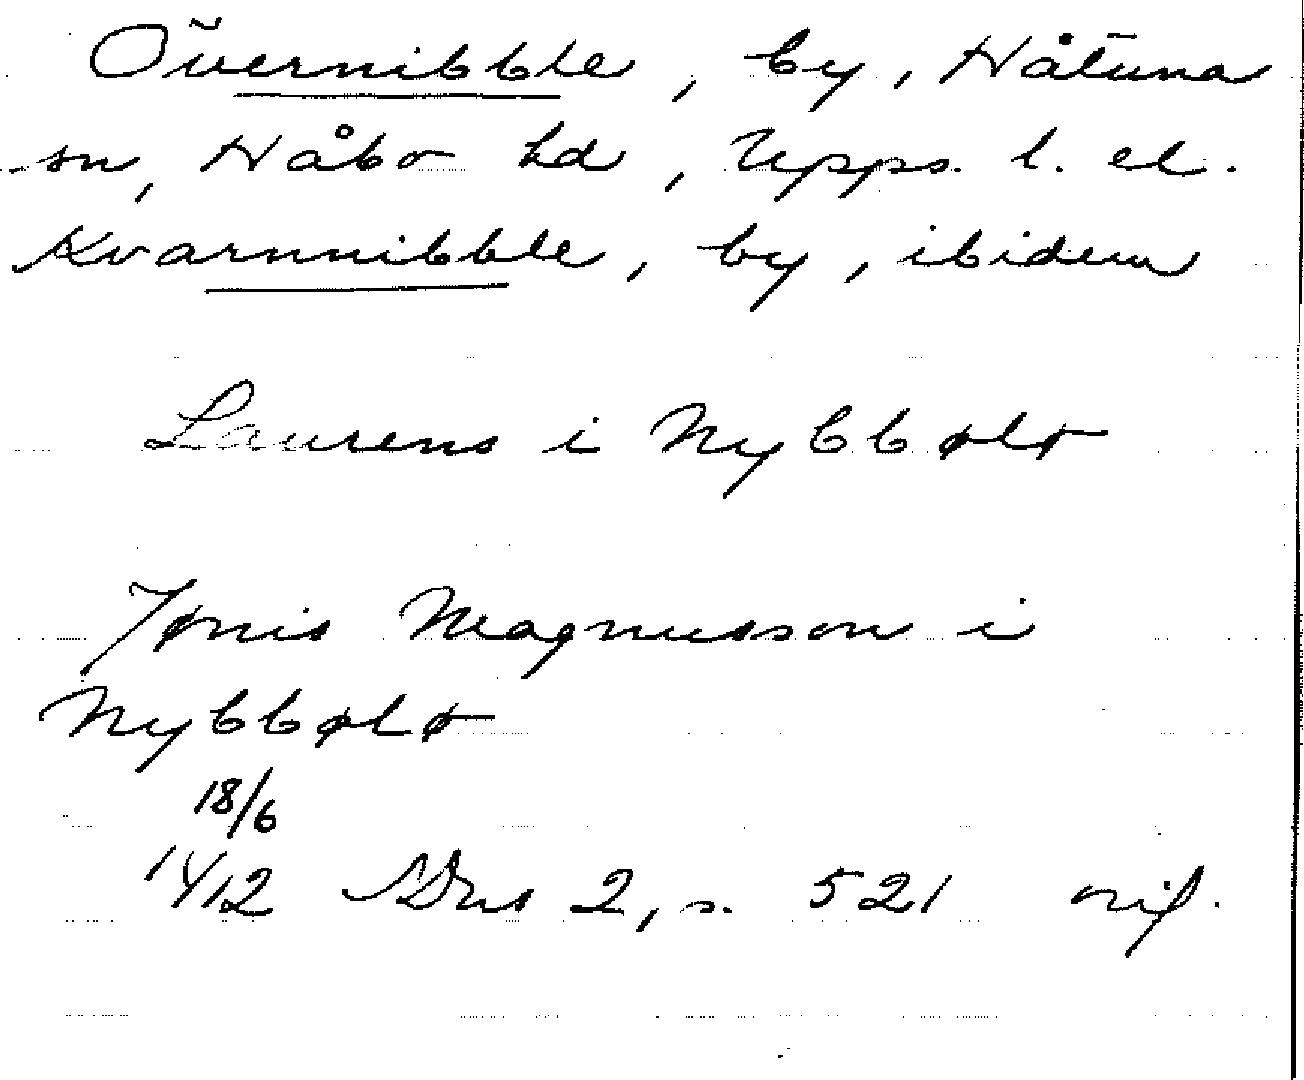 Övernibble, by, Håtuna
sn, Håbo hd, Upps. l. el.
Kvarnnibble, by, ibidem
Laurens i Nybbølø
Jønis Magnusson i
Nybbølø
18/6
1412 SDns 2, s. 521 orig.